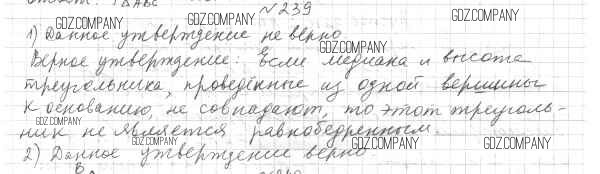 №239
1) Данное утверждение не верно
Верное утверждение: Если медиана и высота
треугольника, проведённые из одной вершины
к основанию, не совпадают, то этот треуголь-
ник не является равнобедренным.
2) Данное утверждение верно
GDZ.COMPANY
GDZ.COMPANY
GDZ.COMPANY
GDZ.COMPANY
GDZ.COMPANY
GDZ.COMPANY
GDZ.COMPANY
GDZ.COMPANY